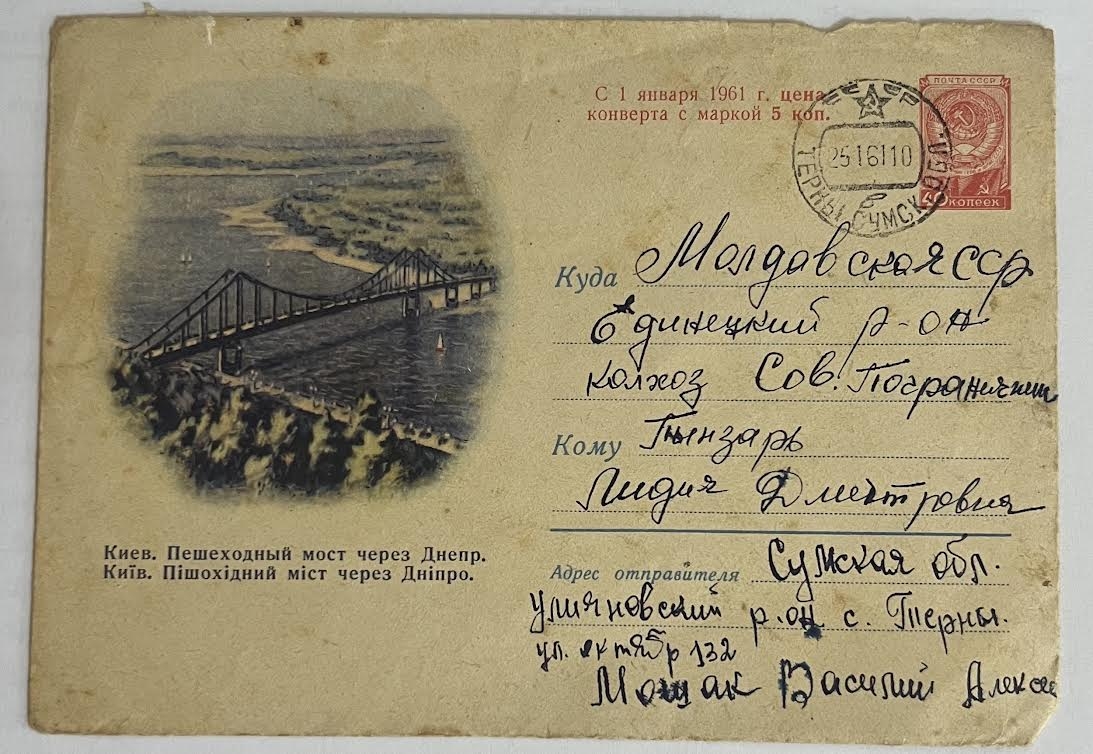 С 1 января 1961 г. цена
конверта с маркой 5 коп.
ПОЧТА СССР
40 КОПЕЕК
СССР
2516110
в
ТЕРНЫ СУМСК. ОБЛ.
Куда Молдавская ССР
Единецкий р-он
колхоз Сов. Пограничник
Кому Тынзарь
Лидия Дмитровна
Киев. Пешеходный мост через Днепр.
Київ. Пішохідний міст через Дніпро.
Адрес отправителя Сумская обл.
Улияновский р.он с. Терны.
ул. октябр 132
Василий Алексе